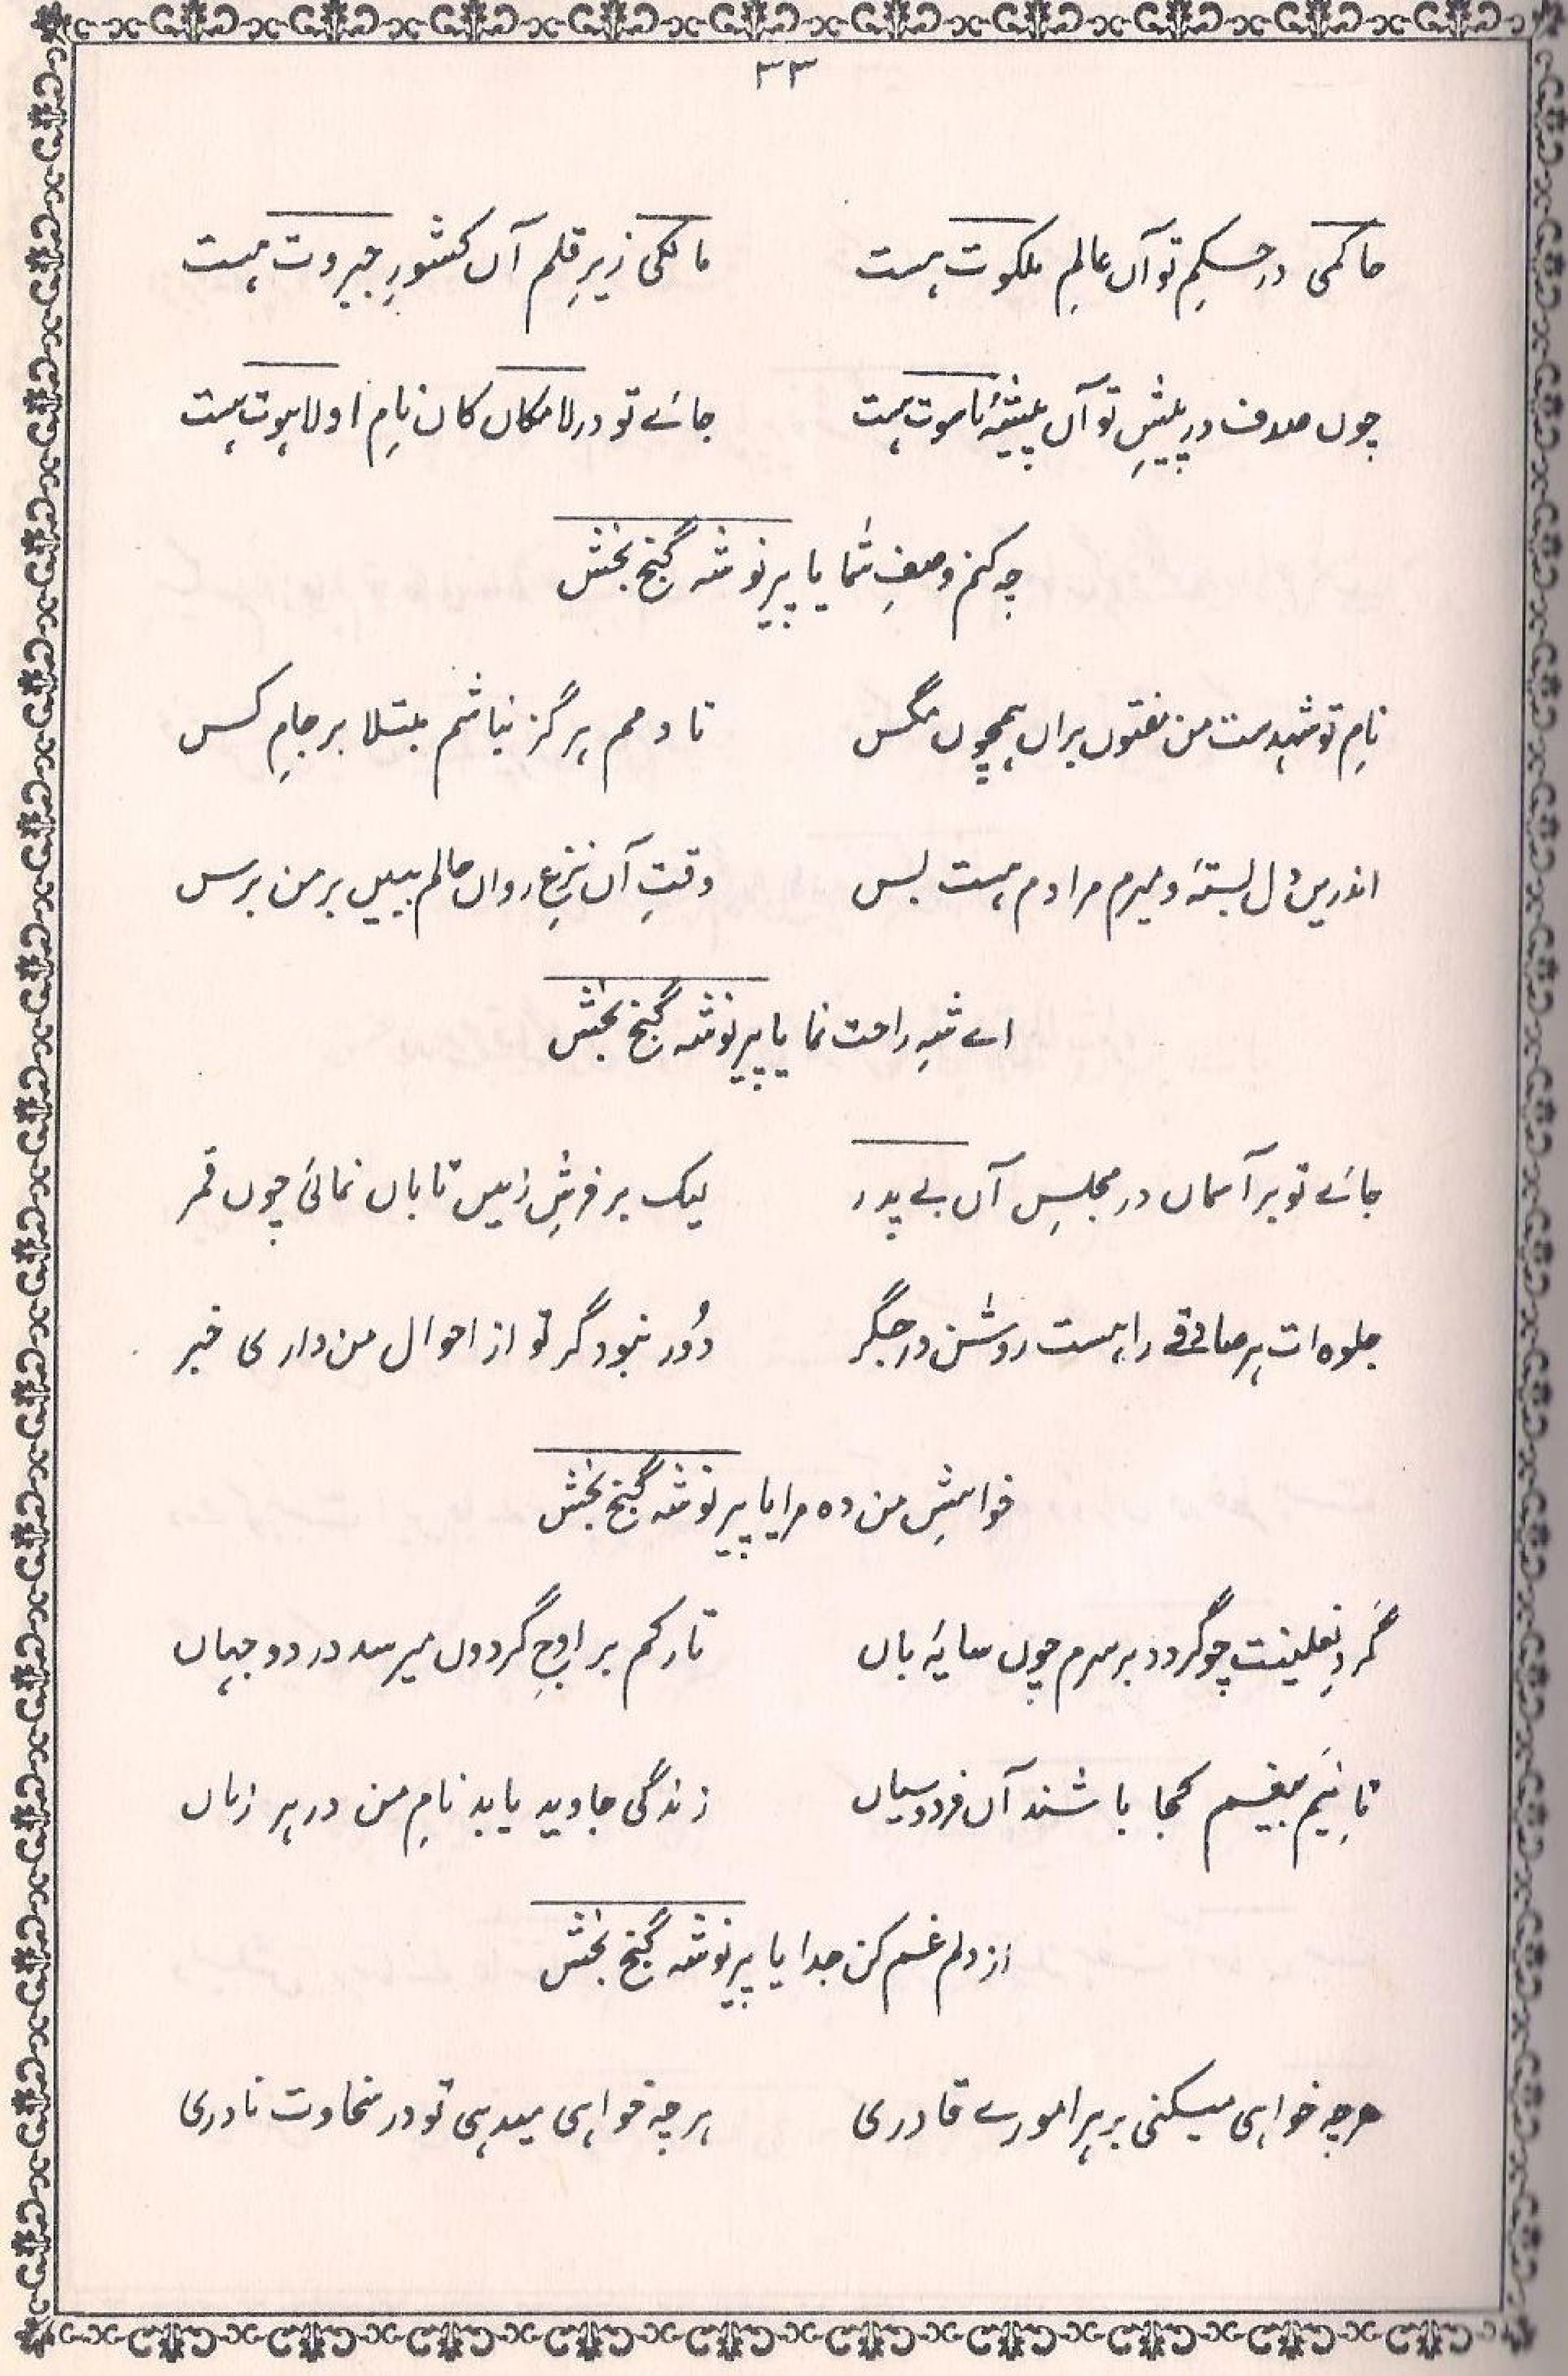 ۳۳
حاکمی در حکمِ تو آں عالمِ ملکوت ہست مالکی زیرِ قلم آں کشورِ جبروت ہست
چوں صدف در پیشِ تو آں بیشۂ ناسوت ہست جائے تو در لامکاں کان نامِ او لاہوت ہست
چہ کنم وصفِ شما یا پیر نوشہ گنج بخش
نامِ تو شہدست من مفتوں براں ہمچوں مگس تا دمم ہرگز نباشم مبتلا بر جامِ کس
اندریں دل بستۂ و میرم مرادم ہست بس وقتِ آں نزعِ رواں حالم ببیں بر من برس
اے شہِ راحت نما یا پیر نوشہ گنج بخش
جائے تو بر آسماں در مجلسِ آں بے پدر لیک بر فرشِ زمیں تاباں نمائی چوں قمر
جلوہ ات ہر صادقے را ہست روشن در جگر دُور نبود گر تو از احوال من داری خبر
خواہشِ من دہ مرا یا پیر نوشہ گنج بخش
گردِ نعلینت چو گردد بر سرم چوں سایۂ باں تارکم بر اوجِ گردوں میرسد در دو جہاں
کجا باشند آں فردوسیاں زندگی جاوید یابد نامِ من در ہر زماں
از دلم غم کن جدا یا پیر نوشہ گنج بخش
ہرچہ خواہی میکنی بر ہر امورے قادری ہرچہ خواہی میدہی تو در سخاوت نادری